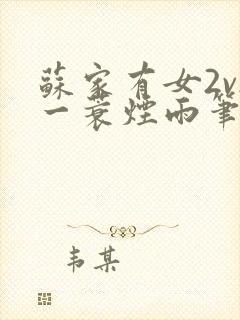 蘇家有女2v
一蓑煙雨筆
韦某